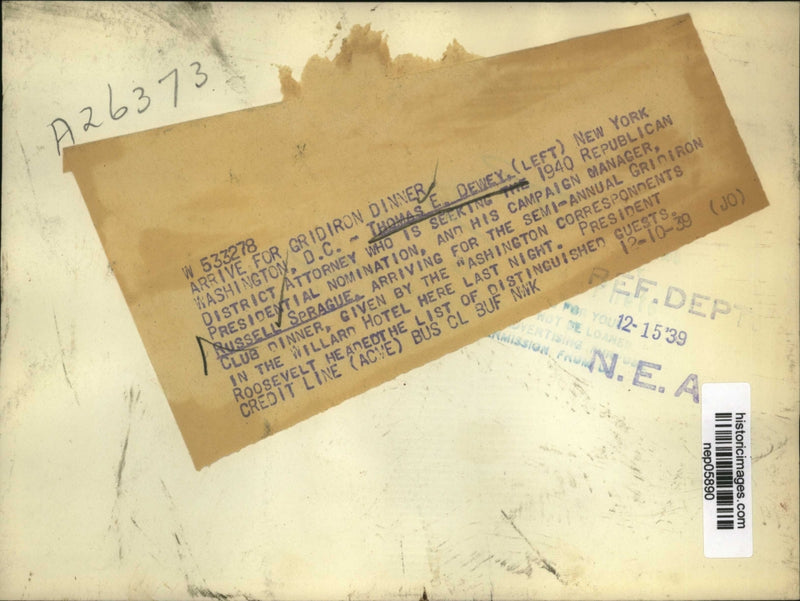 A26373
W 533278
ARRIVE FOR GRIDIRON DINNER
WASHINGTON, D.C. - THOMAS E. DEWEY, (LEFT) NEW YORK
DISTRICT ATTORNEY WHO IS SEEKING THE 1940 REPUBLICAN
PRESIDENTIAL NOMINATION, AND HIS CAMPAIGN MANAGER,
RUSSELL SPRAGUE, ARRIVING FOR THE SEMI-ANNUAL GRIDIRON
CLUB DINNER, GIVEN BY THE WASHINGTON CORRESPONDENTS
IN THE WILLARD HOTEL HERE LAST NIGHT. PRESIDENT
ROOSEVELT HEADEDTHE LIST OF DISTINGUISHED GUESTS.
CREDIT LINE (ACME) BUS CL BUF NWK 12-10-39 (JO)
REF. DEPT
FOR YOU
NOT BE LOANED
ADVERTISING
PERMISSION FROM
12-15'39
N. E. A
historicimages.com
nep05890